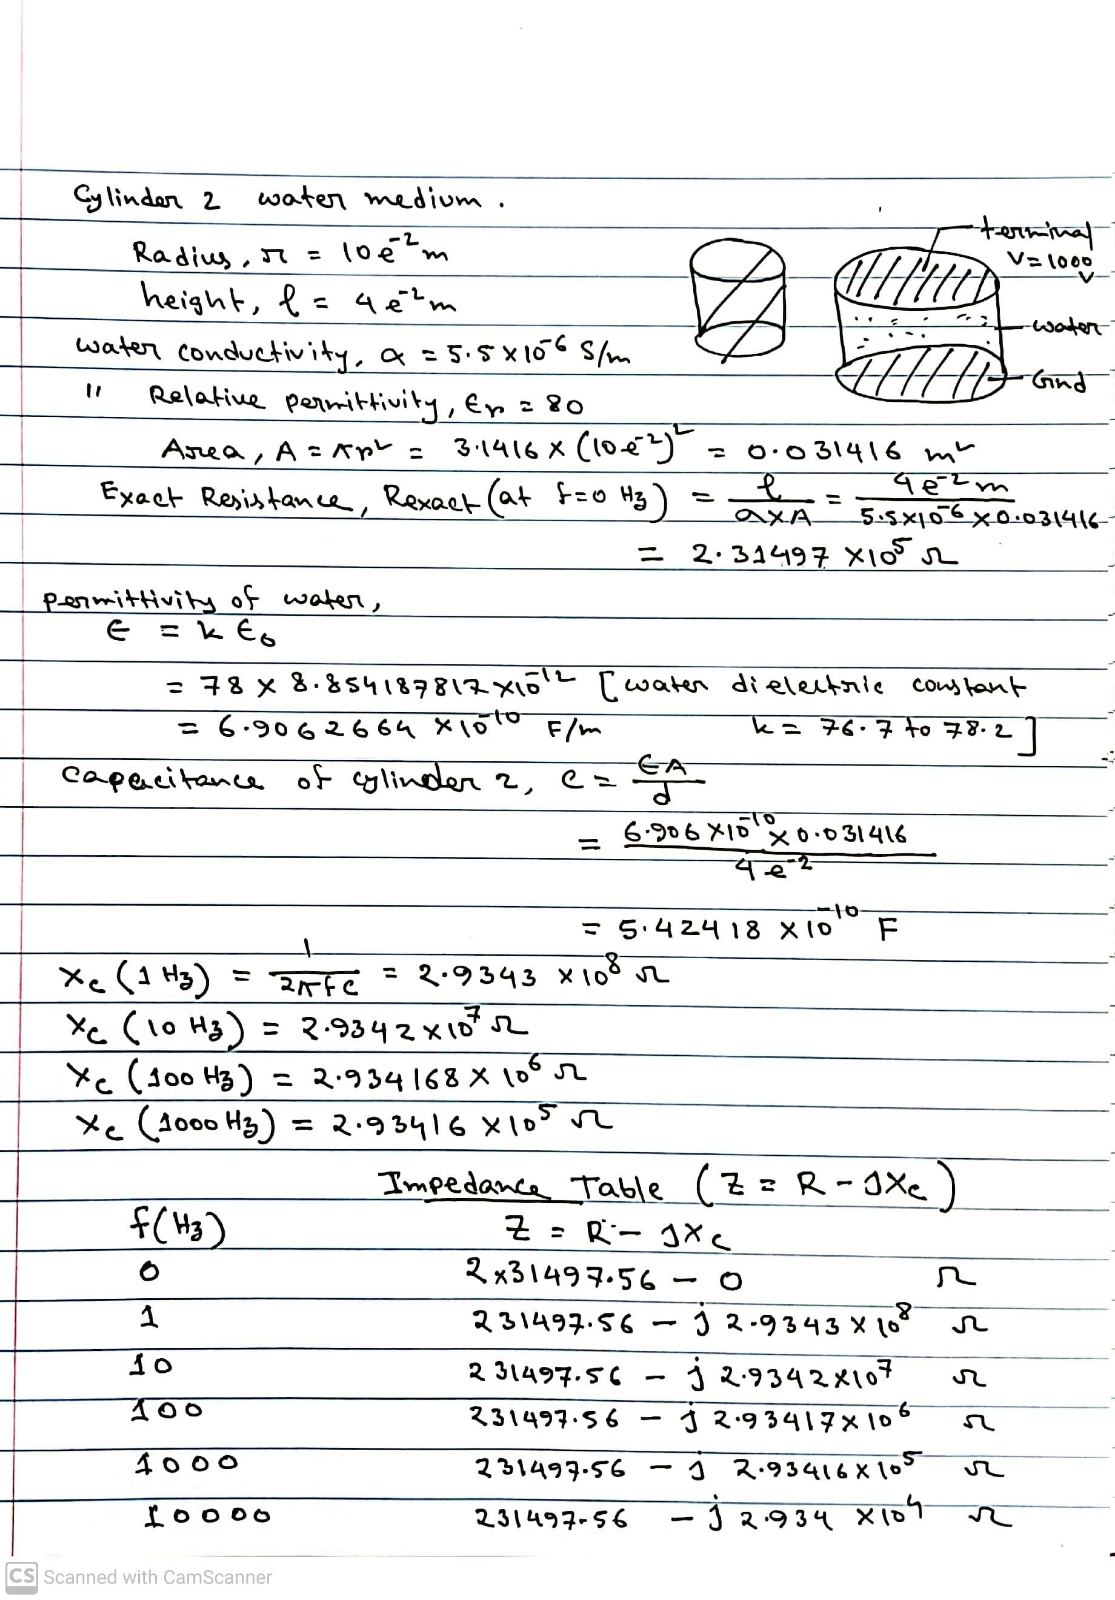 Cylinder 2 water medium.
Radius, r = 10e⁻² m
height, l = 4e⁻² m
terminal
V = 1000 V
water
Gnd
water conductivity, α = 5.5 × 10⁻⁶ S/m
" Relative permittivity, εr = 80
Area, A = πr² = 3.1416 × (10e⁻²)² = 0.031416 m²
Exact Resistance, Rexact (at f=0 Hz) = l / (α×A) = 4e⁻² m / (5.5×10⁻⁶ × 0.031416)
= 2.31497 × 10⁵ Ω
permittivity of water,
ϵ = k ϵ₀
= 78 × 8.854187817 × 10⁻¹² [water dielectric constant
= 6.9062664 × 10⁻¹⁰ F/m k = 76.7 to 78.2]
capacitance of cylinder 2, C = ϵA / d
= 6.906 × 10⁻¹⁰ × 0.031416 / 4e⁻²
= 5.42418 × 10⁻¹⁰ F
Xc (1 Hz) = 1 / 2πfc = 2.9343 × 10⁸ Ω
Xc (10 Hz) = 2.9342 × 10⁷ Ω
Xc (100 Hz) = 2.934168 × 10⁶ Ω
Xc (1000 Hz) = 2.93416 × 10⁵ Ω
Impedance Table (Z = R - JXc)
f(Hz) Z = R - JXc
0 2×31497.56 - 0 Ω
1 231497.56 - j 2.9343 × 10⁸ Ω
10 231497.56 - j 2.9342 × 10⁷ Ω
100 231497.56 - j 2.93417 × 10⁶ Ω
1000 231497.56 - j 2.93416 × 10⁵ Ω
10000 231497.56 - j 2.934 × 10⁴ Ω
CS Scanned with CamScanner